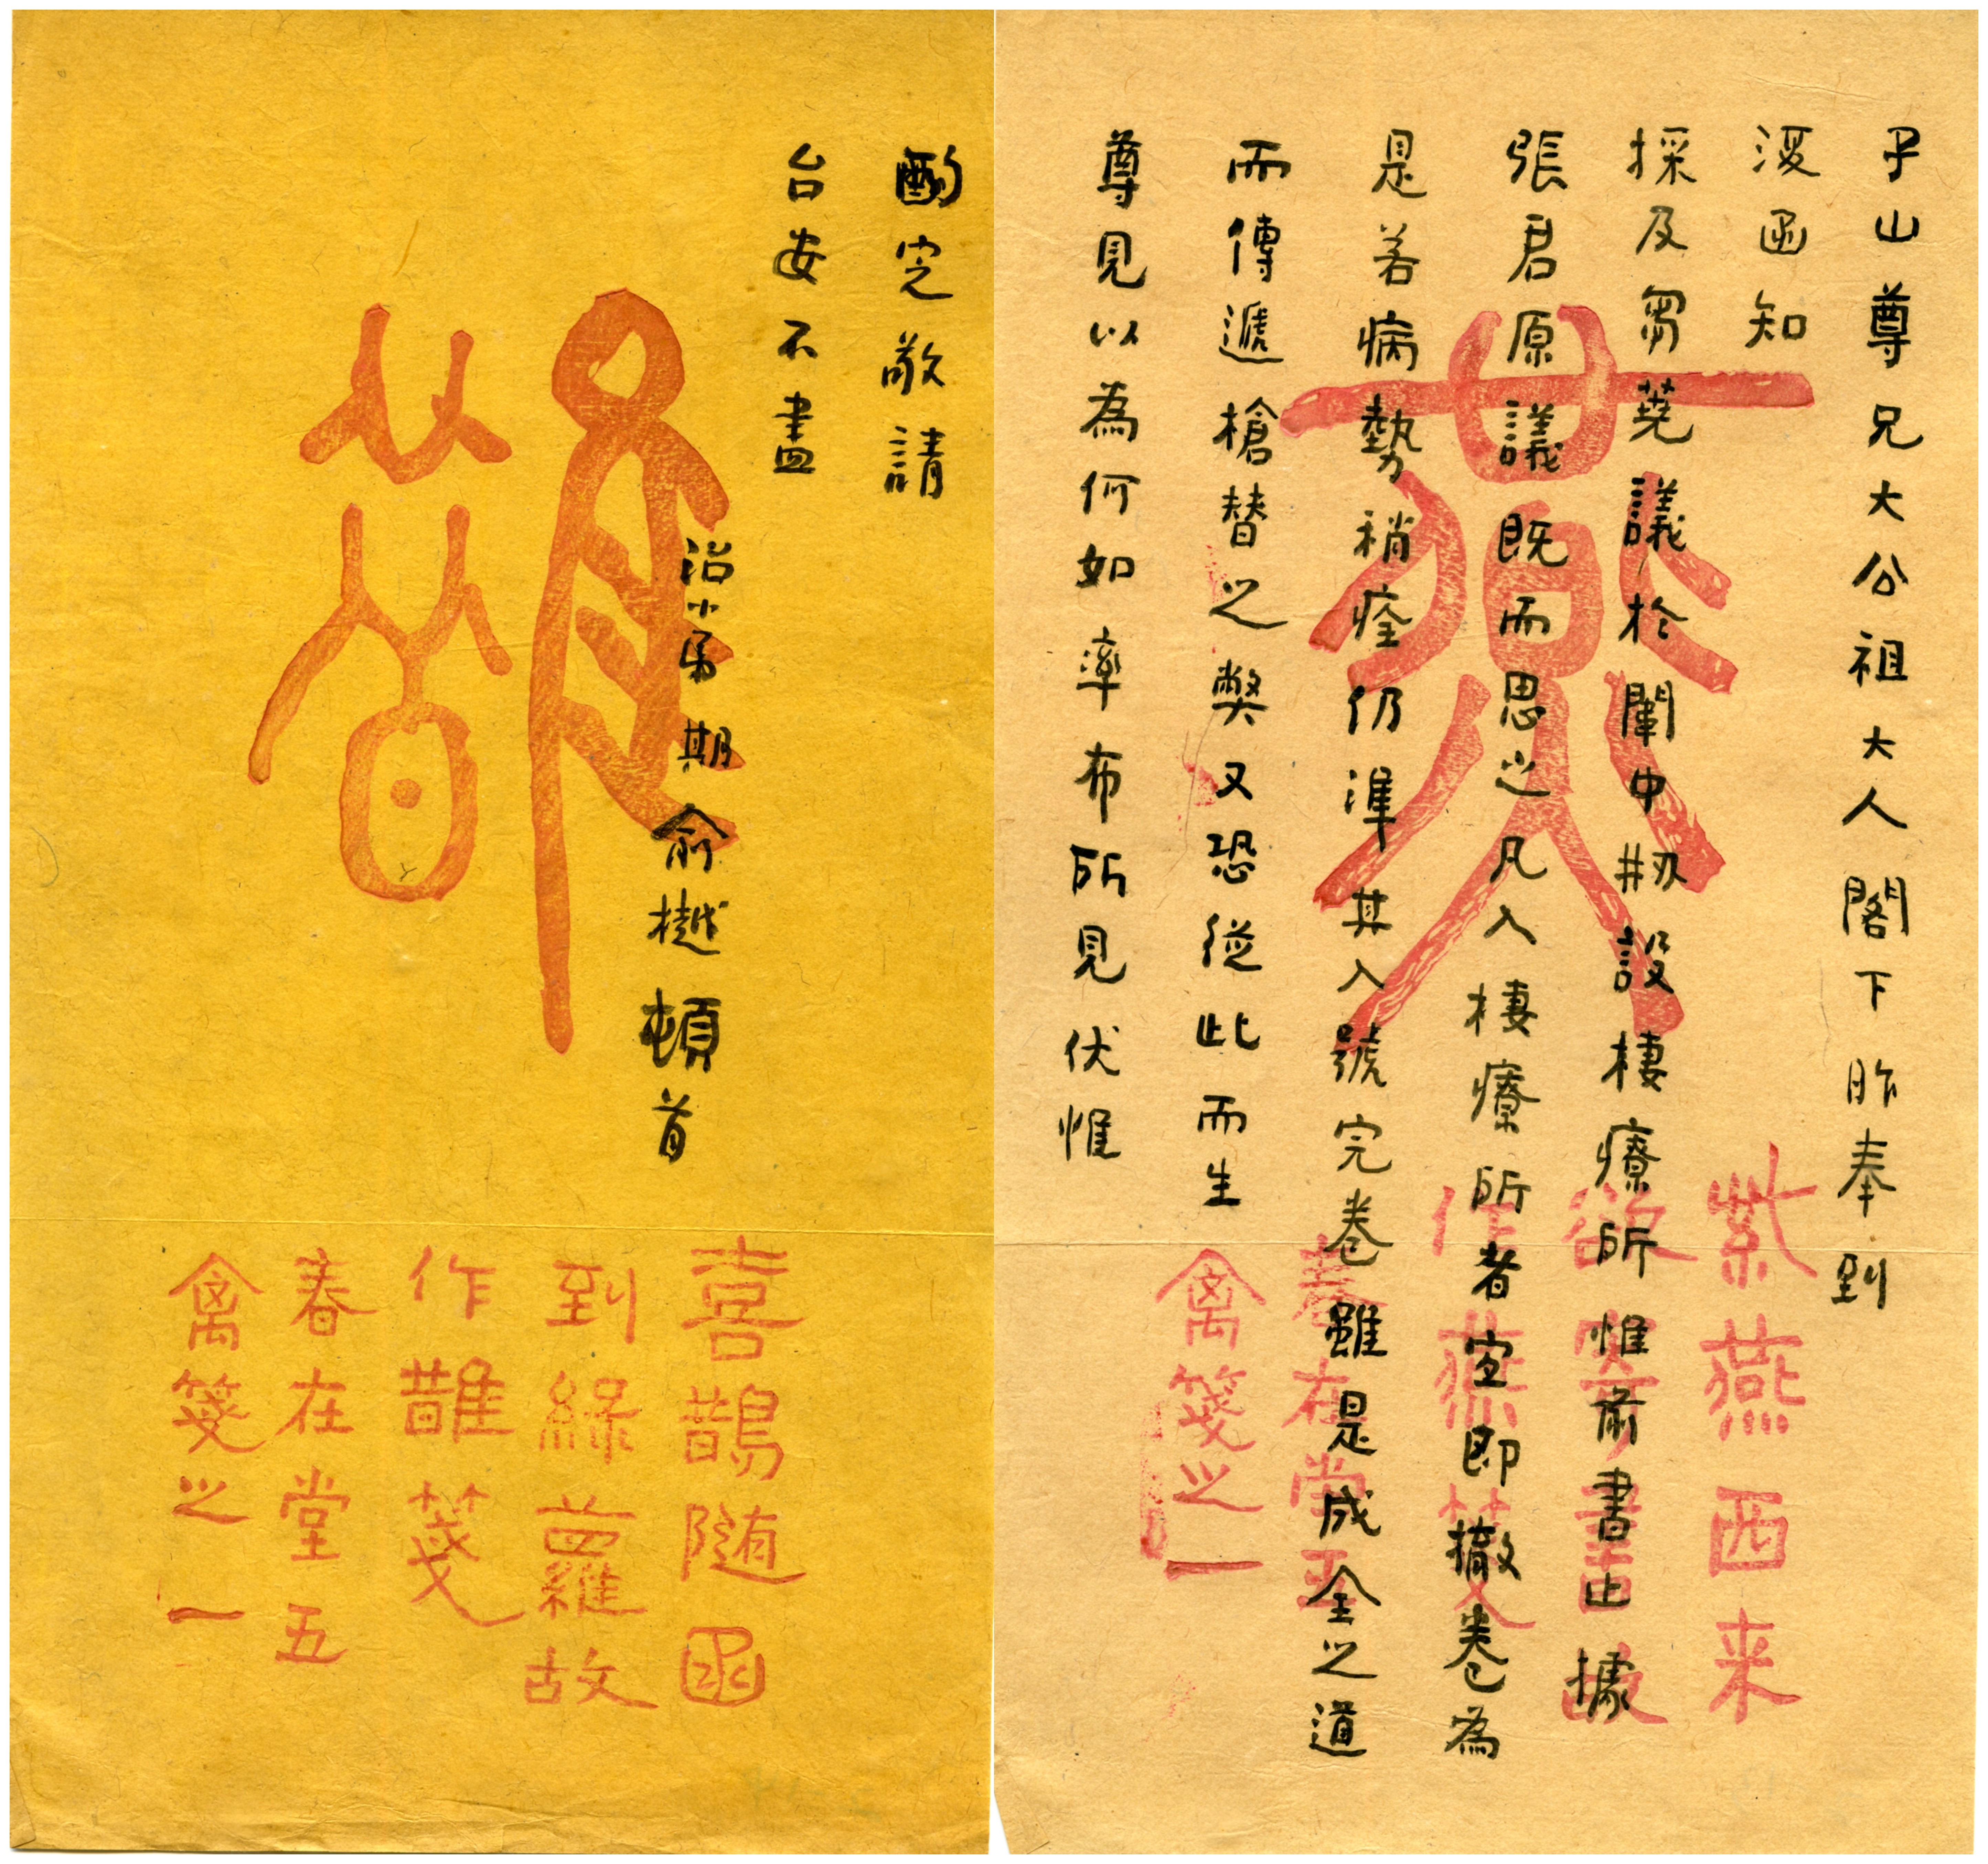 子山尊兄大公祖大人閣下昨奉到
復函知
採及芻蕘議於闈中剏設棲療所惟前書止據
張君原議既而思之凡入棲療所者宜即撤卷為
是若病勢稍痊仍準其入號完卷雖是成全之道
而傳遞槍替之獘又恐從此而生
尊見以為何如率布所見伏惟
燕
紫燕西来
欲寄書故
作燕箋
春在堂五
禽箋之一
酌定敬請
台安不盡
治小弟期俞樾頓首
䧿
喜鵲随函
到綠蘿故
作䧿箋
春在堂五
禽箋之一